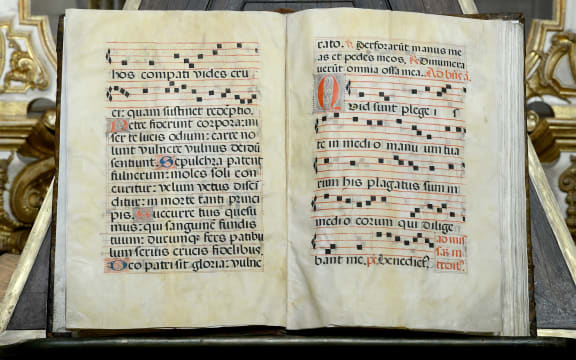 hos compati vides cru
ci: quam sustinet redēptio.
Petre fiderunt corpora: mi
ser te lucis odium: carte no
lunt vulnere vulnus dedoū
sentiunt. Sepulchra patent
fulnerum: moles soli con
cutitur: velum vetus disci
ditur: in morte tanti prin
cipis. Succurre tuis quesu
mus: qui sanguine fundis
tuum: durumq̄ fers patibu
lum servis crucis fidelibus.
Deo patri sit gloria: vulne
rato. ℣. Perforarūt manus me
as et pedes meos, ℟. Dinumera
verūt omnia ossa mea. Ad bn̄. a.
Quid sunt plege i
s
te in medio manuum tua
rum his plagatus sum in
medio eorum qui dilige
bant me, ps. benedict9.
ad mis
sas in
troit9.